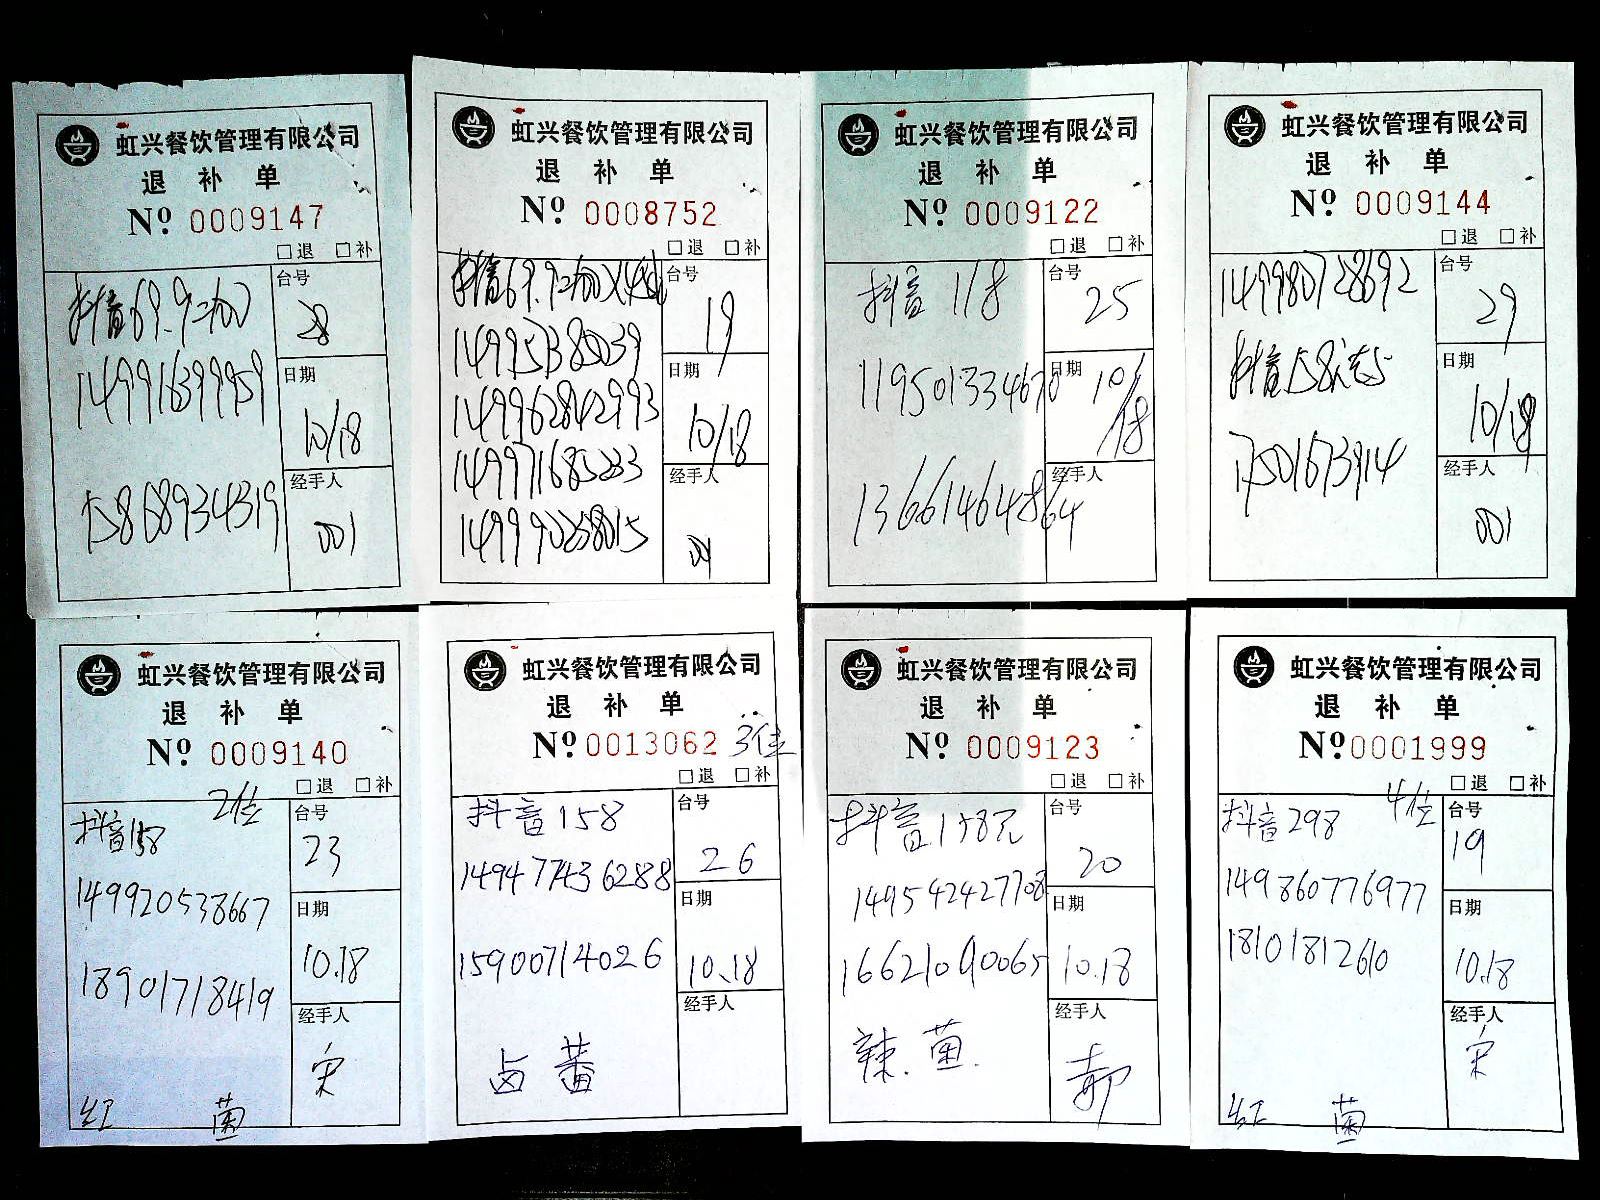 虹兴餐饮管理有限公司
退 补 单
Nº 0009147
□退 □补
抖音69.9=100
台号
28
149916399959
日期
10/18
15868934319
经手人
001
虹兴餐饮管理有限公司
退 补 单
Nº 0008752
□退 □补
抖音69.9=100X4
台号
19
149962842993
日期
10/18
149971685233
经手人
虹兴餐饮管理有限公司
退 补 单
Nº 0009122
□退 □补
抖音 118
台号
25
119501334678
日期
10/18
13661464864
经手人
虹兴餐饮管理有限公司
退 补 单
Nº 0009144
□退 □补
149980728692
台号
29
抖音158
日期
10/18
17501673914
经手人
001
虹兴餐饮管理有限公司
退 补 单
Nº 0009140
□退 □补
2位
抖音158
台号
23
149920538667
日期
10.18
18901718419
经手人
宋
红 菌
虹兴餐饮管理有限公司
退 补 单
Nº 0013062 3位
□退 □补
抖音158
台号
26
149477436288
日期
10.18
15900714026
经手人
卤 蕃
虹兴餐饮管理有限公司
退 补 单
Nº 0009123
□退 □补
抖音158元
台号
20
149542427708
日期
10.18
16621090065
经手人
郝
辣. 菌.
虹兴餐饮管理有限公司
退 补 单
Nº 0001999
□退 □补
抖音298 4位
台号
19
149860776977
日期
10.18
18101812610
经手人
宋
红 菌